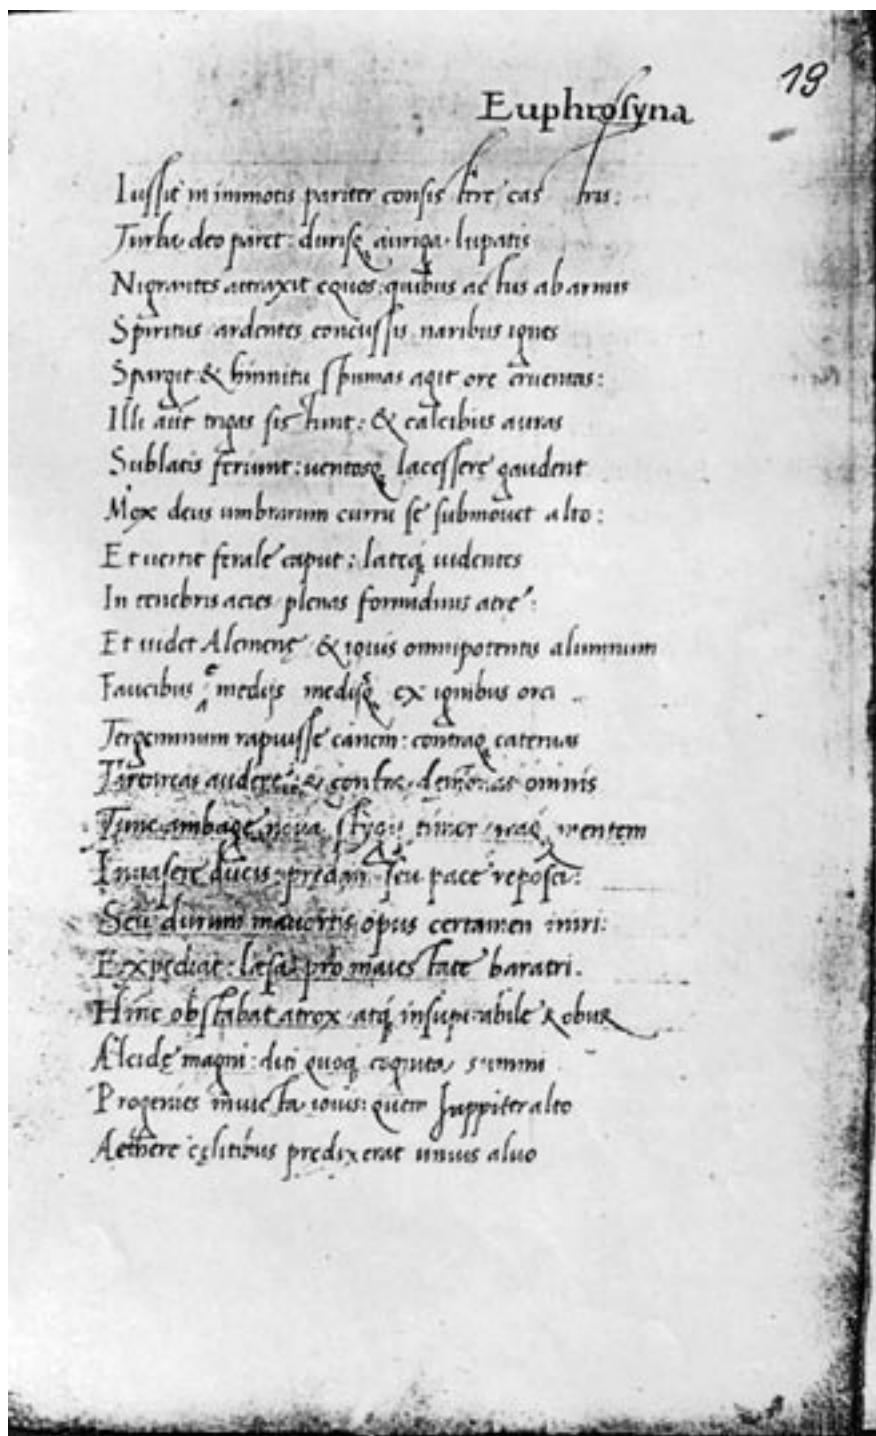 19
Euphrosyna
Iussit in immotis pariter consistere castris:
Turba deo paret: durisq auriga lupatis
Nigrantes attraxit equos: quibus actus ab armis
Spiritus ardentes concussis naribus ignes
Spargit & hinnitu spumas agit ore cruentas:
Illi aut trigas sistunt: & calcibus auras
Sublatis feriunt: uentosq lacessere gaudent
Mox deus umbrarum curru se submouet alto:
Et uertit ferale caput: lateq uidentes
In tenebris acies plenas formidinis atre:
Et uidet Alcmenę & iouis omnipotentis alumnum
Faucibus e medijs medisq ex ignibus orci
Tergeminum rapuisse canem: contraq cateruas
Tartareas audere: & contra demonas omnis
Tunc ambage noua stygij timor iraq mentem
Inuasere ducis: prędam seu pace reposci:
Seu durum mauortis opus certamen iniri:
Expediat: lęsa pro maiestate baratri.
Hinc obstabat atrox atq insupabile Robur
Alcidę magni: diti quoq cognita summi
Progenies inuicta iouis: quem Juppiter alto
Aethere cęlitibus predixerat unius aluo